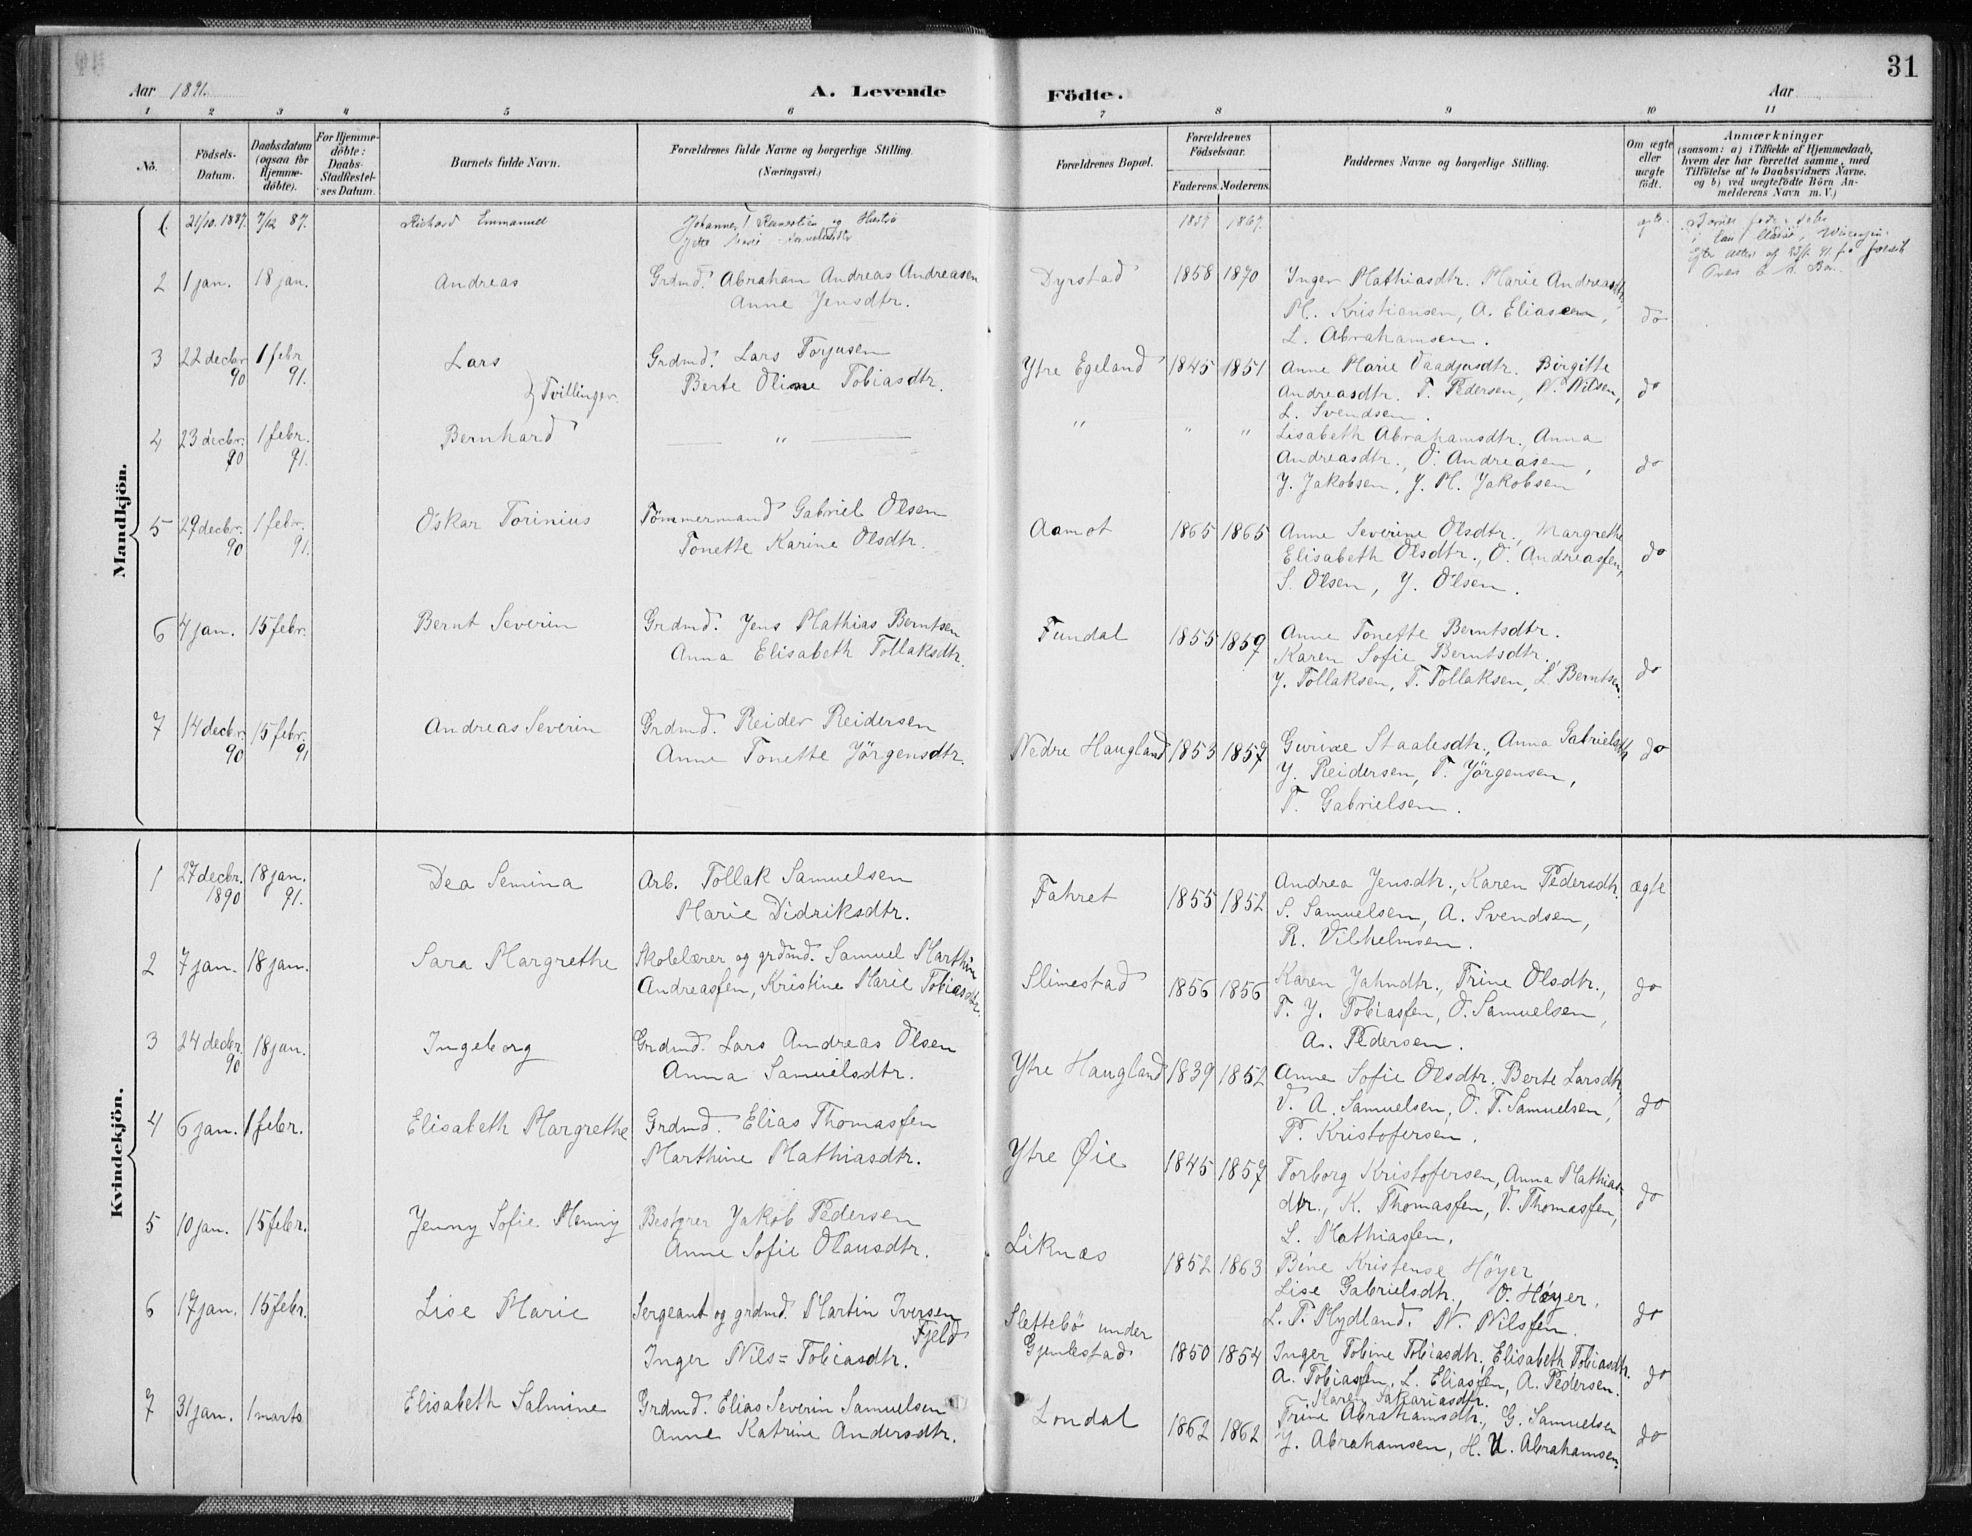 31
Aar 1891.
A. Levende Födte.
Aar
1 2 3 4 5 6 7 8 9 10 11
No.
Födsels-Datum.
Daabsdatum (ogsaa for Hjemme-döbte).
For Hjemme-döbte: Daabs-Stadfæstel-ses Datum.
Barnets fulde Navn.
Forældrenes fulde Navne og borgerlige Stilling. (Næringsvei.)
Forældrenes Bopæl.
Forældrenes Födselsaar.
Faderens. Moderens.
Faddernes Navne og borgerlige Stilling.
Om ægte eller uægte födt.
Anmærkninger
(saasom: a) i Tilfælde af Hjemmedaab, hvem der har forrettet samme, med Tilföielse af to Daabsvidners Navne. og b) ved uægtefödte Börn An-melderens Navn m. V.)
Mandkjön.
1. 21/10. 1887. 7/12 87. Richard Emmanuel
Johannes og Hustru
1867.
2 1 jan. 18 jan. Andreas Grdmd. Abraham Andreas Andreasen Dyrstad 1858 1870 Inger Mathiasdtr. Marie Andreasdtr.
Anne Jensdtr. M. Kristiansen, A. Eliasen, do
L. Abrahamsen.
3 22 decbr. 1 febr. Lars Grdmd. Lars Torjusen Ytre Egeland 1845 1851 Anne Marie Vaadjusdtr. Birgitte
90 91. } Tvillinger. Berte Oline Tobiasdtr. Andreasdtr. T. Pedersen, N. Nilsen, do
L. Svendsen.
4 23 decbr. 1 febr. Bernhard — " — " " " Lisabeth Abrahamsdtr., Anna
90 91. Andreasdtr., O. Andreasen, do
J. Jakobsen, J. M. Jakobsen
5 29 decbr. 1 febr. Oskar Torinius Tömmermand Gabriel Olsen Aamot 1865 1865 Anne Severine Olsdtr., Margrethe
90 91. Tonette Karine Olsdtr. Elisabeth Olsdtr., O. Andreasen, do
S. Olsen, J. Olsen.
6 4 jan. 15 febr. Bernt Severin Grdmd. Jens Mathias Berntsen Fundal 1855 1859 Anne Tonette Berntsdtr.
Anna Elisabeth Tollaksdtr. Karen Sofie Berntsdtr.
J. Tollaksen, T. Tollaksen, L. Berntsen. do
7 14 decbr. 15 febr. Andreas Severin Grdmd. Reider Reidersen Nedre Haugland 1853 1857 Gurine Staalesdtr., Anna Gabrielsdtr do
90 91 Anne Tonette Jörgensdtr. J. Reidersen, T. Jörgensen,
T. Gabrielsen.
Kvindekjön.
1 27 decbr. 18 jan. Dea Semina Arb. Tollak Samuelsen Fahret 1855 1852 Andrea Jensdtr., Karen Pedersdtr. ægte
1890 91. Marie Didriksdtr. S. Samuelsen, A. Svendsen,
R. Vilhelmsen.
2 7 jan. 18 jan. Sara Margrethe Skolelærer og grdmd. Samuel Marthin Slimestad 1856 1856 Karen Jahndtr., Trine Olsdtr., do
Andreassen, Kristine Marie Tobiasdtr. T. J. Tobiassen, O. Samuelsen,
A. Pedersen.
3 24 decbr. 18 jan. Ingeborg Grdmd. Lars Andreas Olsen Ytre Haugland 1839 1852 Anne Sofie Olsdtr., Berte Larsdtr,
90 Anna Samuelsdtr. V. A. Samuelsen, O. T. Samuelsen, do
P. Kristofersen.
4 6 jan. 1 febr. Elisabeth Margrethe Grdmd. Elias Thomassen Ytre Øie 1845 1857 Torborg Kristofersen, Anna Mathias-
Marthine Mathiasdtr. dtr., K. Thomassen, V. Thomassen, do
L. Mathiassen.
5 10 jan. 15 febr. Jenny Sofie Menny Bestyrer Jakob Pedersen Liknæs 1852 1863 Bine Kristense Höyer
Anne Sofie Olausdtr. Lise Gabrielsdtr., O. Höyer.
L. P. Mydland. N. Nilssen. do
6 17 jan. 15 febr. Lise Marie Sergeant og grdmd. Martin Iversen Slettebö under
Fjeld Gjemlestad 1850 1854 Inger Tobine Tobiasdtr., Elisabeth Tobiasdtr.
Inger Nils=Tobiasdtr. A. Tobiassen, L. Eliassen, A. Pedersen. do
7 31 jan. 1 marts Elisabeth Salmine Grdmd. Elias Severin Samuelsen Londal 1862 1862 Karen Sakariasdtr.
Anne Katrine Andersdtr. Trine Abrahamsdtr., G. Samuelsen
J. Abrahamsen, H. U. Abrahamsen. do